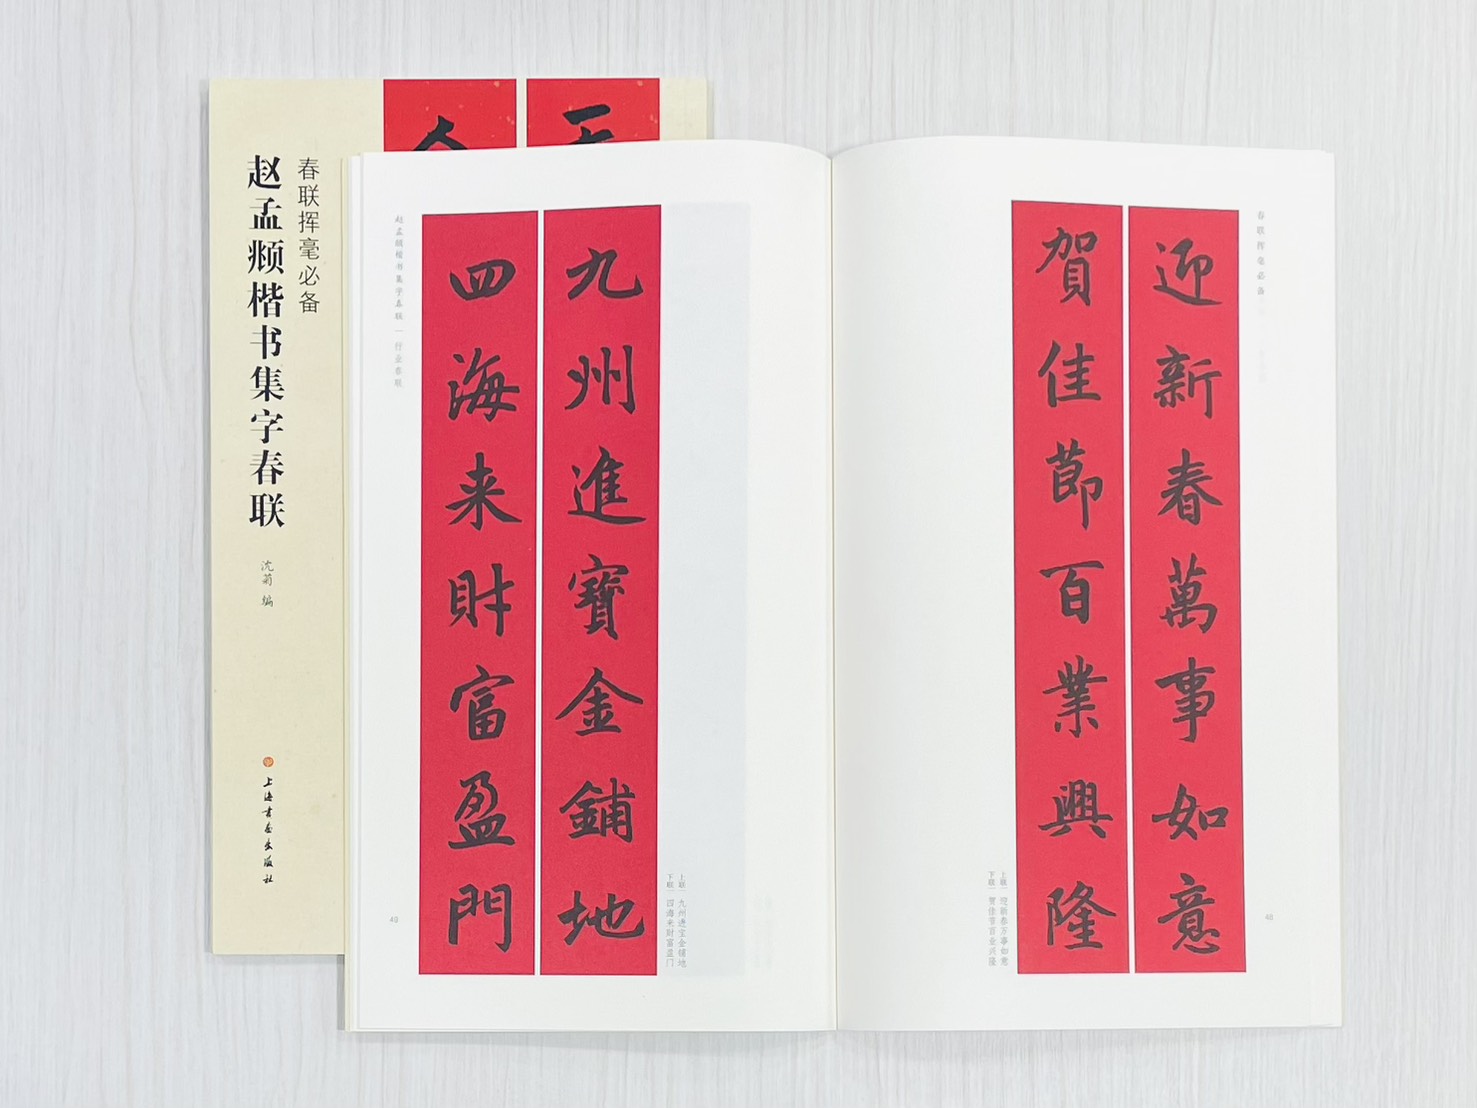 春联挥毫必备
赵孟頫楷书集字春联
沈菊 编
上海书画出版社
春联挥毫必备
迎新春萬事如意
賀佳節百業興隆
上联 迎新春万事如意
下联 贺佳节百业兴隆
48
九州進寶金鋪地
四海来財富盈門
上联 九州进宝金铺地
下联 四海来财富盈门
赵孟頫楷书集字春联 行业春联